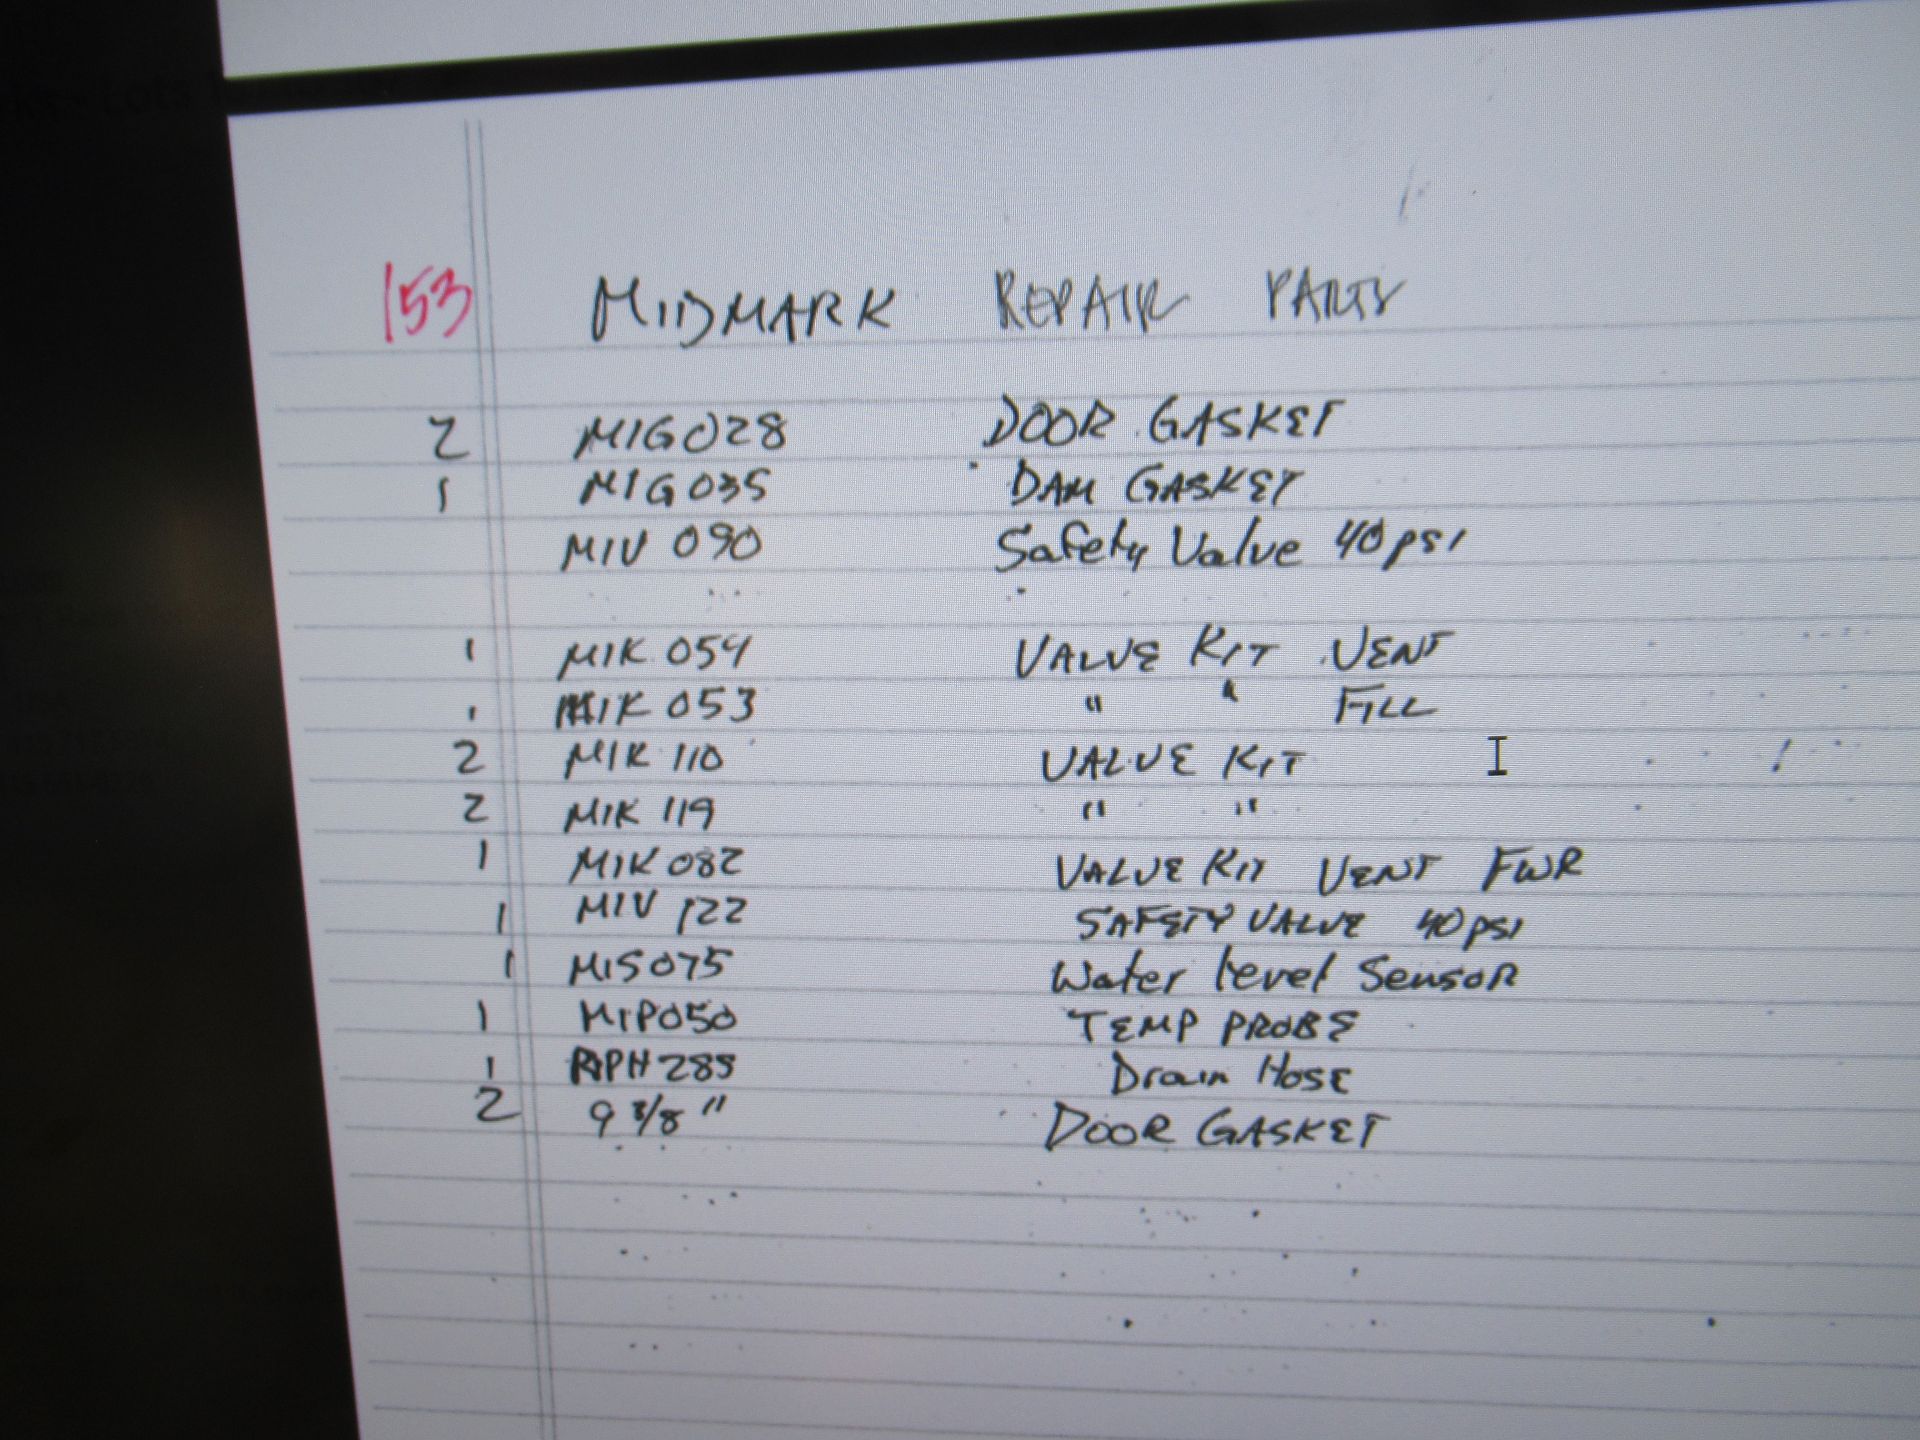 Lots
153 MIDMARK REPAIR PARTS
2 MIG028 DOOR GASKET
1 MIG035 DAM GASKET
MIV 090 Safety Valve 40psi
1 MIK 054 VALVE KIT VENT
1 MIK 053 " " FILL
2 MIK 110 VALVE KIT
2 MIK 119 " "
1 MIK 082 VALVE KIT VENT FWR
1 MIV 122 SAFETY VALVE 40psi
1 MIS075 Water level Sensor
1 MIP050 TEMP PROBE
1 Drain Hose
2 9 3/8" DOOR GASKET